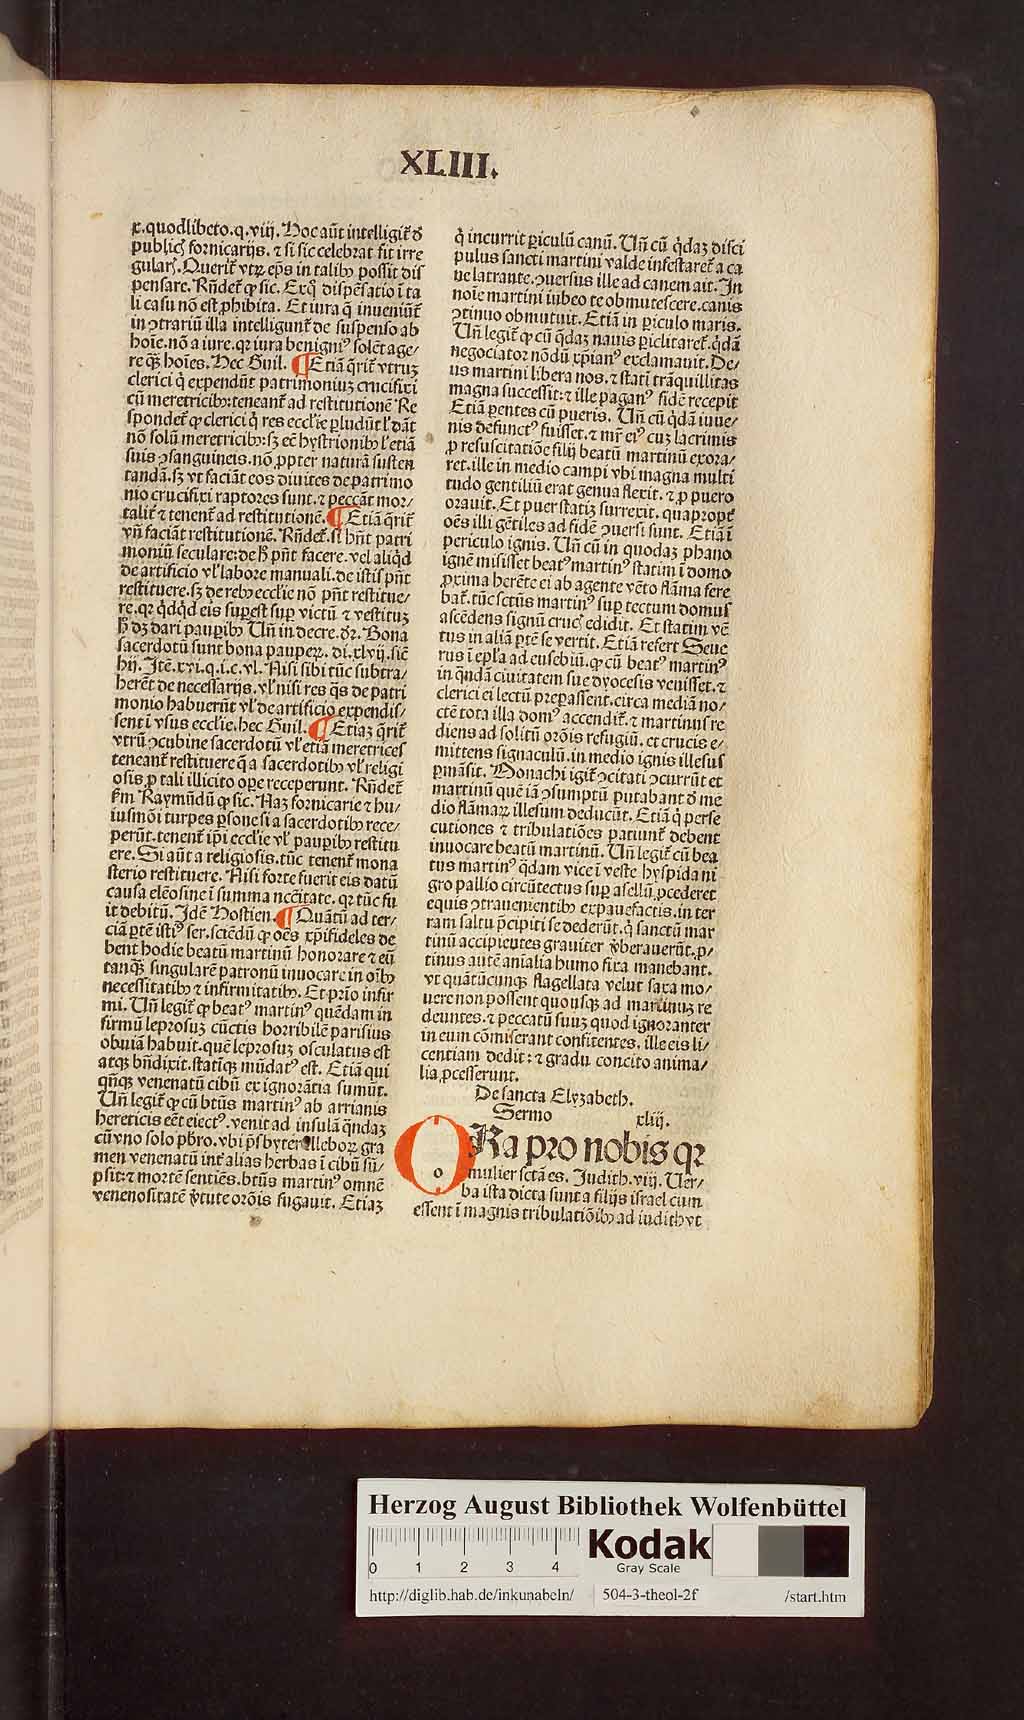 XLIII.
x.quodlibeto.q.viij. Hoc aūt intelligit̄ d̄
publicꝭ fornicarijs. ⁊ si sic celebrat fit irre
gularꝭ. Querit̄ vtꝝ ep̄s in talibꝰ possit dis
pensare. Rn̄det̄ ꝙ sic. Exq̄ dispēsatio ī ta
li casu nō est ꝓhibita. Et iura q̄ inueniūt̄
in ꝯtrariū illa intelligunt̄ de suspenso ab
hoīe.nō a iure.qꝛ iura benigniꝰ solēt age/
re qꝫ hoīes. Hec Guil. ¶ Etiā q̄rit̄ vtruꝫ
clerici q̇ expendūt patrimoniuꝫ crucifixi
cū meretricibꝰ:teneant̄ ad restitutionē Re
spondet̄ ꝙ clerici q̇ res eccl̓ie ꝑludūt l̓ dāt
nō solū meretricibꝰ:sꝫ eē hystrionibꝰ l̓ etiā
suis ꝯsanguineis.nō ꝓpter naturā susten
tandā.sꝫ vt faciāt eos diuites de patrimo
nio crucifixi raptores sunt.⁊ peccāt mor/
talit̄ ⁊ tenent̄ ad restitutionē. ¶ Etiā q̄rit̄
vn̄ faciāt restitutionē. Rn̄det̄.si hn̄t patri
moniū seculare:de hͦ pn̄t facere.vel aliq̇d
de artificio vl̓ labore manuali.de istis pn̄t
restituere.sꝫ de rebꝰ eccl̓ie nō pn̄t restitue/
re.qꝛ q̇dq̇d eis suꝑest suꝑ victū ⁊ vestituꝫ
hͦ dꝫ dari pauꝑibꝰ Un̄ in decre.dꝛ. Bona
sacerdotū sunt bona pauperꝝ. di.xlvij.sic̄
hij. Itē.xvi.q.i.c.vl. Nisi sibi tūc subtra/
herēt de necessarijs.vl̓ nisi res q̄s de patri
monio habuerūt vl̓ de artificio expendis/
sent ī vsus eccl̓ie.hec Guil. ¶ Etiaꝫ q̄rit̄
vtrū ꝯcubine sacerdotū vl̓ etiā meretrices
teneant̄ restituere q̄ a sacerdotibꝰ vl̓ religi
osis ꝓ tali illicito oꝑe receperunt. Rn̄det̄
fm̄ Raymūdū ꝙ sic. Naꝫ fornicarie ⁊ hu/
iusmōi turpes ꝑsone si a sacerdotibꝰ rece/
perūt.tenent̄ ip̄i eccl̓ie vl̓ pauꝑibꝰ restitu
ere. Si aūt a religiosis.tūc tenent̄ mona
sterio restituere. Nisi forte fuerit eis datū
causa eleōsine ī summa nc̄citate.qꝛ tūc fu
it debitū. Idē Hostien. ¶ Quātū ad ter/
ciā ꝑtē istiꝰ ser.sciēdū ꝙ oēs xp̄ifideles de
bent hodie beatū martinū honorare ⁊ eū
tanqꝫ singularē patronū inuocare in oībꝰ
necessitatibꝰ ⁊ infirmitatibꝰ. Et pr̄io infir
mi. Un̄ legit̄ ꝙ beatꝰ martinꝰ quēdam in
firmū leprosuꝫ cūctis horribilē parisius
obuiā habuit.quē leprosuꝫ osculatus est
atqꝫ bn̄dixit.statīqꝫ mūdatꝰ est. Etiā qui
qn̄qꝫ venenatū cibū ex ignorātia sumūt.
Un̄ legit̄ ꝙ cū bt̄us martinꝰ ab arrianis
hereticis eēt eiectꝰ.venit ad insulā q̄ndaꝫ
cū vno solo pb̄ro.vbi p̄sbyter elleborꝝ gra
men venenatū int̄ alias herbas ī cibū sū/
psit:⁊ mortē sentiēs.bt̄us martinꝰ omnē
venenositatē v̓tute orōis fugauit. Etiaꝫ
q̇ incurrit ꝑiculū canū. Un̄ cū q̇daꝫ disci
pulus sancti martini valde infestaret̄ a ca
ne latrante.ꝯuersus ille ad canem ait. In
noīe martini iubeo te obmutescere.canis
ꝯtinuo obmutuit. Etiā in ꝑiculo maris.
Un̄ legit̄ ꝙ cū q̄daꝫ nauis ꝑiclitaret̄.q̇dā
negociator nōdū xp̄ianꝰ exclamauit. De/
us martini libera nos.⁊ stati trāquillitas
magna successit:⁊ ille paganꝰ fidē recepit
Etiā ꝑentes cū pueris. Un̄ cū q̇dā iuue/
nis defunctꝰ fuisset.⁊ mr̄ eiꝰ cuꝫ lacrimis
ꝓ resuscitatiōe filij beatū martinū exora/
ret.ille in medio campi vbi magna multi
tudo gentiliū erat genua flexit.⁊ ꝓ puero
orauit. Et puer statiꝫ surrexit.quapropt̄
oēs illi gētiles ad fidē ꝯuersi sunt. Etiā ī
periculo ignis. Un̄ cū in quodaꝫ phano
ignē misisset beatꝰ martinꝰ statim ī domo
ꝓxima herēte ei ab agente vēto flāma fere
bat̄.tūc sct̄us martinꝰ suꝑ tectum domus
ascēdens signū crucꝭ edidit. Et statim vē
tus in aliā ꝑtē se vertit. Etiā refert Seue
rus ī ep̄la ad eusebiū.ꝙ cū beatꝰ martinꝰ
in q̄ndā ciuitatem sue dyocesis venisset.⁊
clerici ei lectū preꝑassent.circa mediā no/
ctē tota illa domꝰ accendit̄.⁊ martinus re
diens ad solitū orōis refugiū.et crucis e/
mittens signaculū.in medio ignis illesus
ꝑmāsit. Monachi igit̄ ꝯcitati ꝯcurrūt et
martinū quē iā ꝯsumptū putabant d̄ me
dio flāmaꝝ illesum deducūt. Etiā q̇ perse
cutiones ⁊ tribulatiōes patiunt̄ debent
inuocare beatū martinū. Un̄ legit̄ cū bea
tus martinꝰ q̇dam vice ī veste hyspida ni
gro pallio circūtectus suꝑ asellū ꝓcederet
equis ꝯtrauenientibꝰ expauefactis.in ter
ram saltu p̄cipiti se dederūt.q̇ sanctū mar
tinū accipientes grauiter v̓berauerūt.ꝓ/
tinus autē aīalia humo fixa manebant.
vt quātūcunqꝫ flagellata velut saxa mo/
uere non possent quousqꝫ ad martinuꝫ re
deuntes.⁊ peccatū suuꝫ quod ignoranter
in eum cōmiserant confitentes.ille eis li/
centiam dedit:⁊ gradu concito anima/
lia ꝓcesserunt.
De sancta Elyzabeth.
Sermo xliij.
ORa pro nobis qꝛ
mulier sctā es. Judith.viij. Uer/
ba ista dicta sunt a filijs israel cum
essent ī magnis tribulatiōibꝰ ad iudith vt
Herzog August Bibliothek Wolfenbüttel
0 1 2 3 4
Kodak
Gray Scale
http://diglib.hab.de/inkunabeln/ 504-3-theol-2f /start.htm